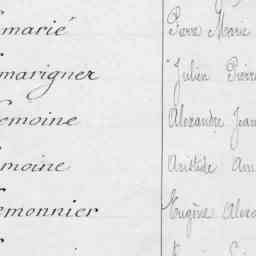 marié Pierre Marie
marigner Julien Pierre
emoine Alexandre Jean
moine Aristide
emonnier Eugène